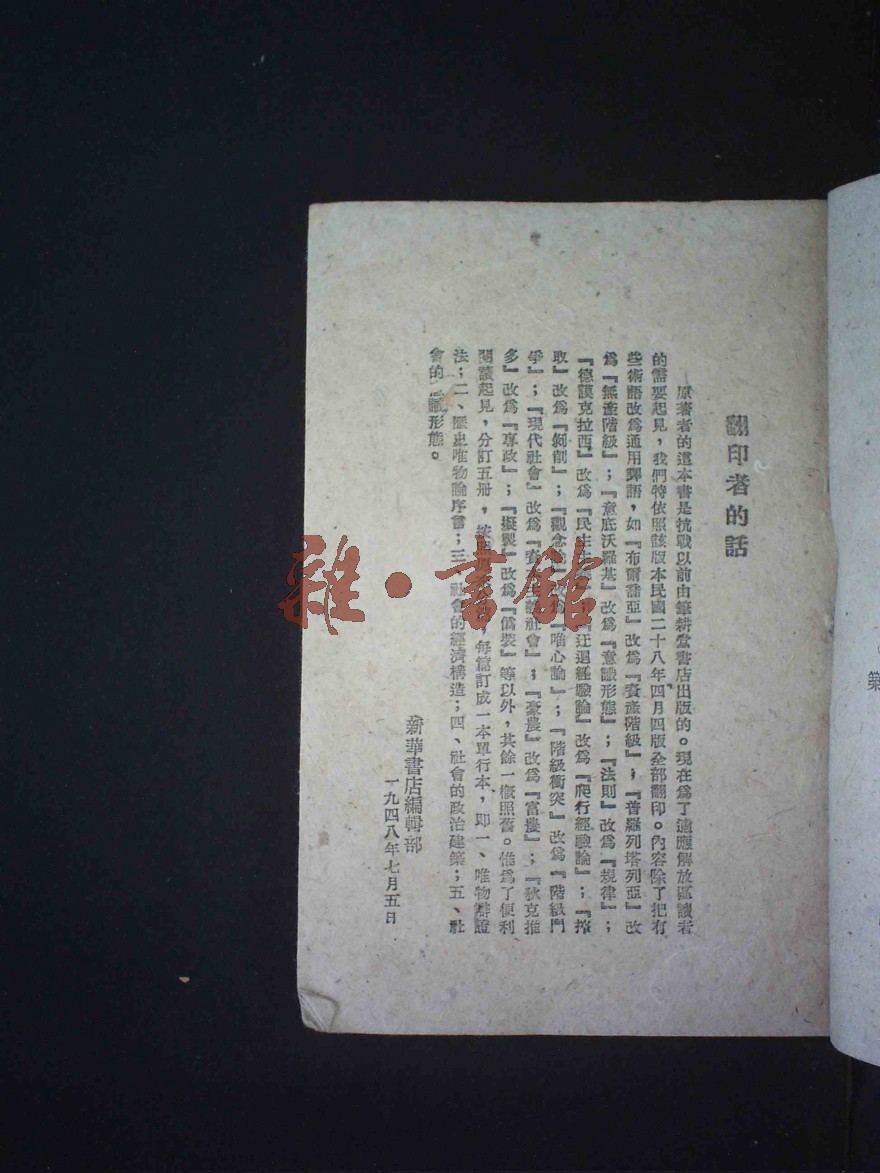 翻印者的話
原著者的這本書是抗戰以前由筆耕堂書店出版的。現在為了適應解放區讀者
的需要起見，我們特依照該版本民國二十八年四月四版全部翻印。內容除了把有
些術語改為通用譯語，如『布爾喬亞』改為『資產階級』；『普羅列塔列亞』改
為『無產階級』；『意底沃羅基』改為『意識形態』；『法則』改為『規律』；
『德謨克拉西』改為『民主主義』；『迂迴經驗論』改為『爬行經驗論』；『搾
取』改為『剝削』；『觀念論』改為『唯心論』；『階級衝突』改為『階級鬥
爭』；『現代社會』改為『資本主義社會』；『豪農』改為『富農』；『狄克推
多』改為『專政』；『擬製』改為『僞裝』等以外，其餘一概照舊。惟為了便利
閱讀起見，分訂五册，按照，每篇訂成一本單行本，即一、唯物辯證
法；二、歷史唯物論序言；三、社會的經濟構造；四、社會的政治建築；五、社
會的識形態。
新華書店編輯部
一九四八年七月五日
雜·書館
築